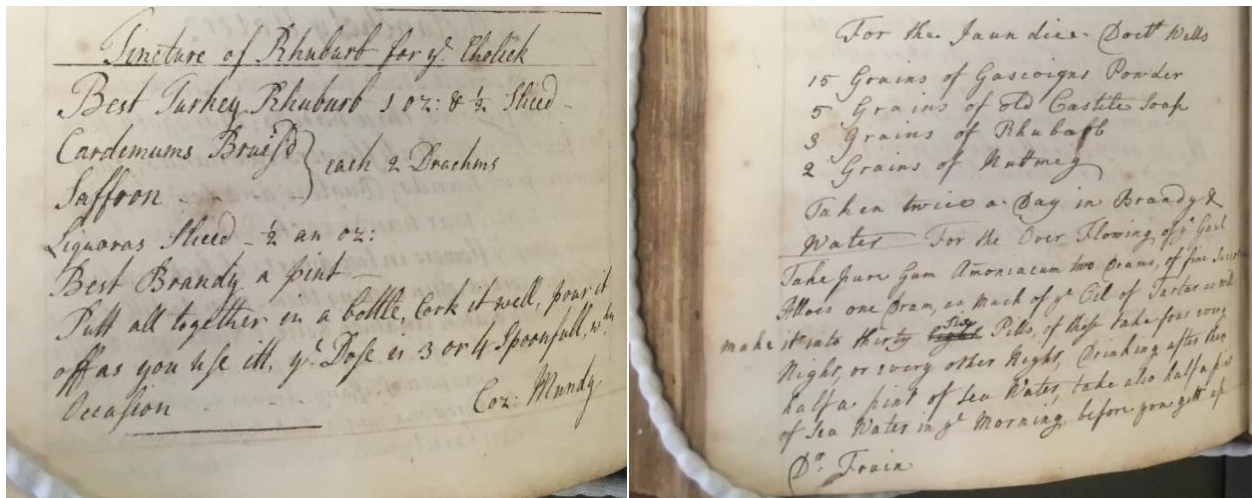 Tincture of Rhubarb for yᵉ Cholick
Best Turkey Rhubarb 1 oz: & ½ Sliced
Cardemums Bruis'd } each 2 Drachms
Saffron
Liquoras Sliced - ½ an oz:
Best Brandy a pint
Putt all together in a bottle, Cork it well, pour it
off as you use itt, yᵉ Dose is 3 or 4 Spoonfull, wⁿ
Occasion
Coz: Mundy.
For the Jaundice Doctʳ Wells
15 Grains of Gascoigns Powder
5 Grains of old Castile Soap
3 Grains of Rhubarb
2 Grains of Nutmeg
Taken twice a Day in Brandy &
Water For the Over Flowing of yᵉ Gall
Take pure Gum Amoniacum two Drams, of fine
Alloes one Dram, as Much of yᵉ Oil of Tartar as will
make itt into thirty Six Pills, of these take four every
Night, or every other Night, Drinking after them
half a pint of Sea Water, take also half a pint
of Sea Water in yᵉ Morning, before you gett up
Dʳ. Frain